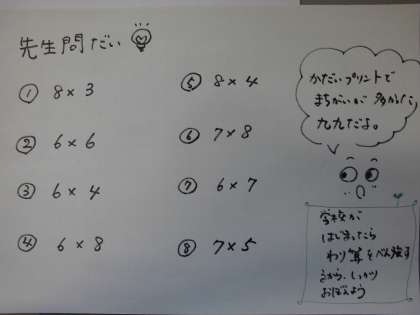 先生問だい
① 8×3
② 6×6
③ 6×4
④ 6×8
⑤ 8×4
⑥ 7×8
⑦ 6×7
⑧ 7×5
かだいプリントで
まちがいが多かった
九九だよ。
学校が
はじまったら
わり算をべん強す
るから、しっかり
おぼえよう